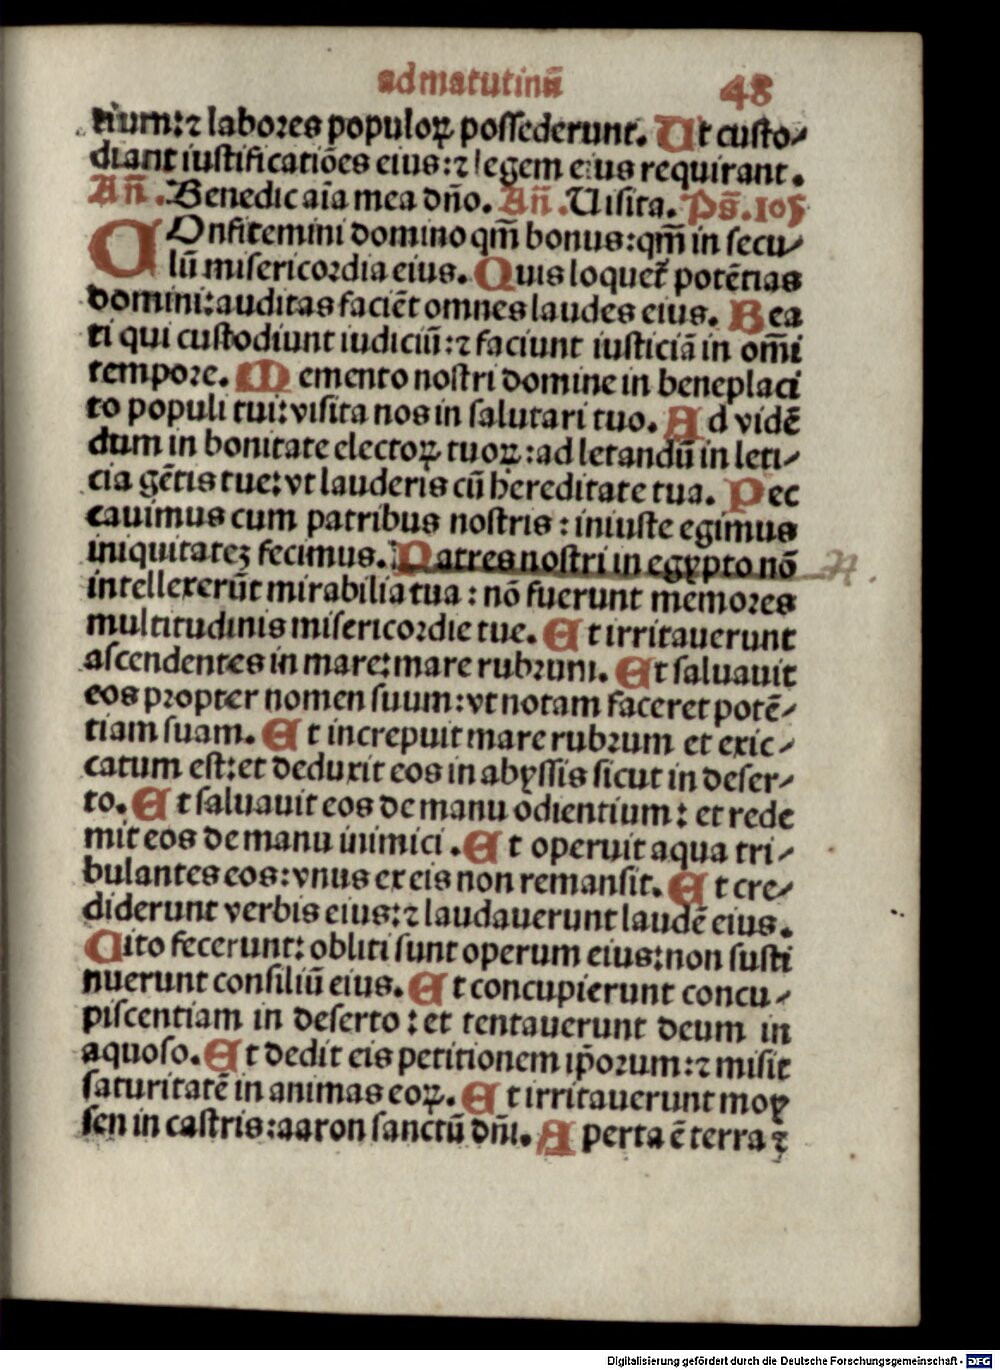 ad matutinū 48
tium:⁊ labores populoꝝ possederunt. Ut custo-
diant iustificatiões eius:⁊ legem eius requirant.
Añ. Benedic aīa mea dño. Añ. Uisita. Ps̄.105
COnfitemini domino qm̄ bonus:qm̄ in secu-
lū misericordia eius. Quis loquet᷑ potētias
domini:auditas faciēt omnes laudes eius. Bea
ti qui custodiunt iudiciū:⁊ faciunt iusticiā in om̄i
tempore. Memento nostri domine in beneplaci
to populi tui:visita nos in salutari tuo. Ad vidē
dum in bonitate electoꝝ tuoꝝ:ad letandū in leti-
cia gētis tue:vt lauderis cū hereditate tua. Pec
cauimus cum patribus nostris : iniuste egimus
iniquitateꝫ fecimus. Patres nostri in egypto nō
intellexerūt mirabilia tua : nō fuerunt memores
multitudinis misericordie tue. Et irritauerunt
ascendentes in mare:mare rubrum. Et saluauit
eos propter nomen suum:vt notam faceret potē-
tiam suam. Et increpuit mare rubrum et exic-
catum est:et deduxit eos in abyssis sicut in deser-
to. Et saluauit eos de manu odientium: et rede
mit eos de manu inimici. Et operuit aqua tri-
bulantes eos:vnus ex eis non remansit. Et cre-
diderunt verbis eius:⁊ laudauerunt laudē eius.
Cito fecerunt:obliti sunt operum eius:non susti
nuerunt consiliū eius. Et concupierunt concu-
piscentiam in deserto:et tentauerunt deum in
aquoso. Et dedit eis petitionem ip̄orum:⁊ misit
saturitatē in animas eoꝝ. Et irritauerunt moy
sen in castris:aaron sanctū dñi. Aperta ē terra ⁊
Digitalisierung gefördert durch die Deutsche Forschungsgemeinschaft - DFG